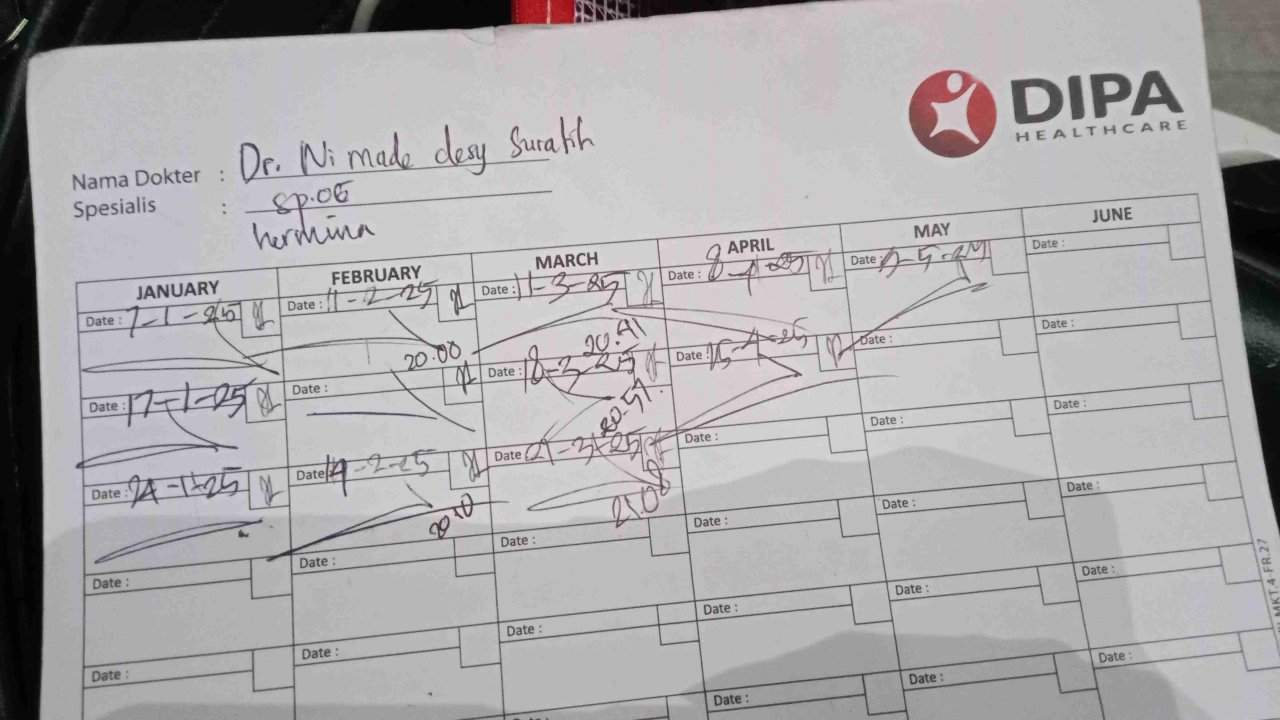 DIPA
HEALTHCARE
Nama Dokter : Dr. Ni made desy Suratih
Spesialis : sp.OG
hermina
JANUARY FEBRUARY MARCH APRIL MAY JUNE
Date : 7-1-25 Date : 11-2-25 Date : 11-3-25 Date : 8-4-25 Date : Date :
20.00 20.41
Date : 17-1-25 Date : Date : 18-3-25 Date : 15-4-25 Date : Date :
20.51
Date : 24-1-25 Date : 14-2-25 Date : 21-3-25 Date : Date : Date :
20.10
Date : Date : Date : Date : Date : Date :
Date : Date : Date : Date : Date : Date :
Date : Date : Date :
MKT.4-FR.27